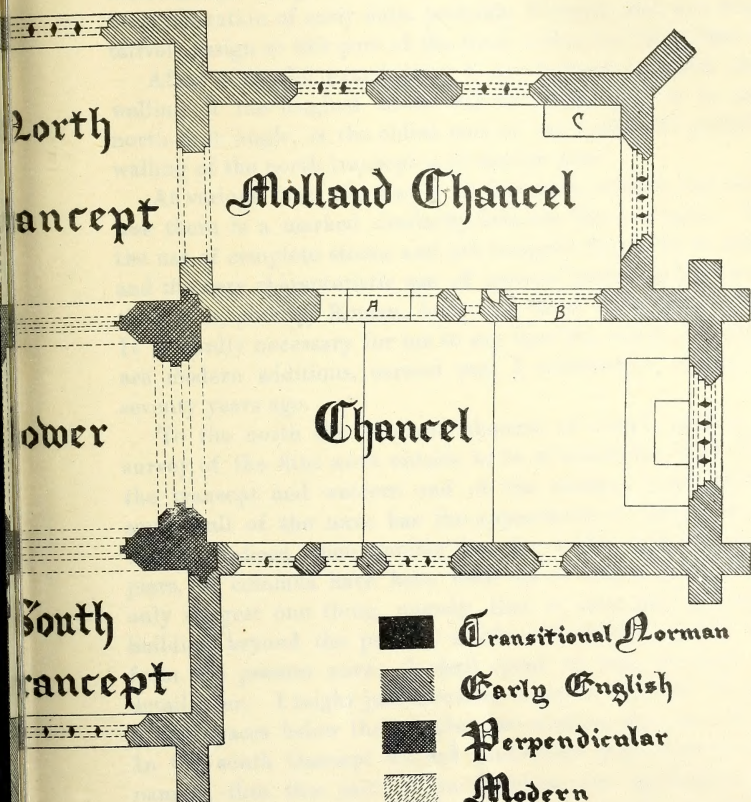 North
Trancept
Molland Chancel
C
A
B
Tower
Chancel
South
Trancept
Transitional Norman
Early English
Perpendicular
Modern